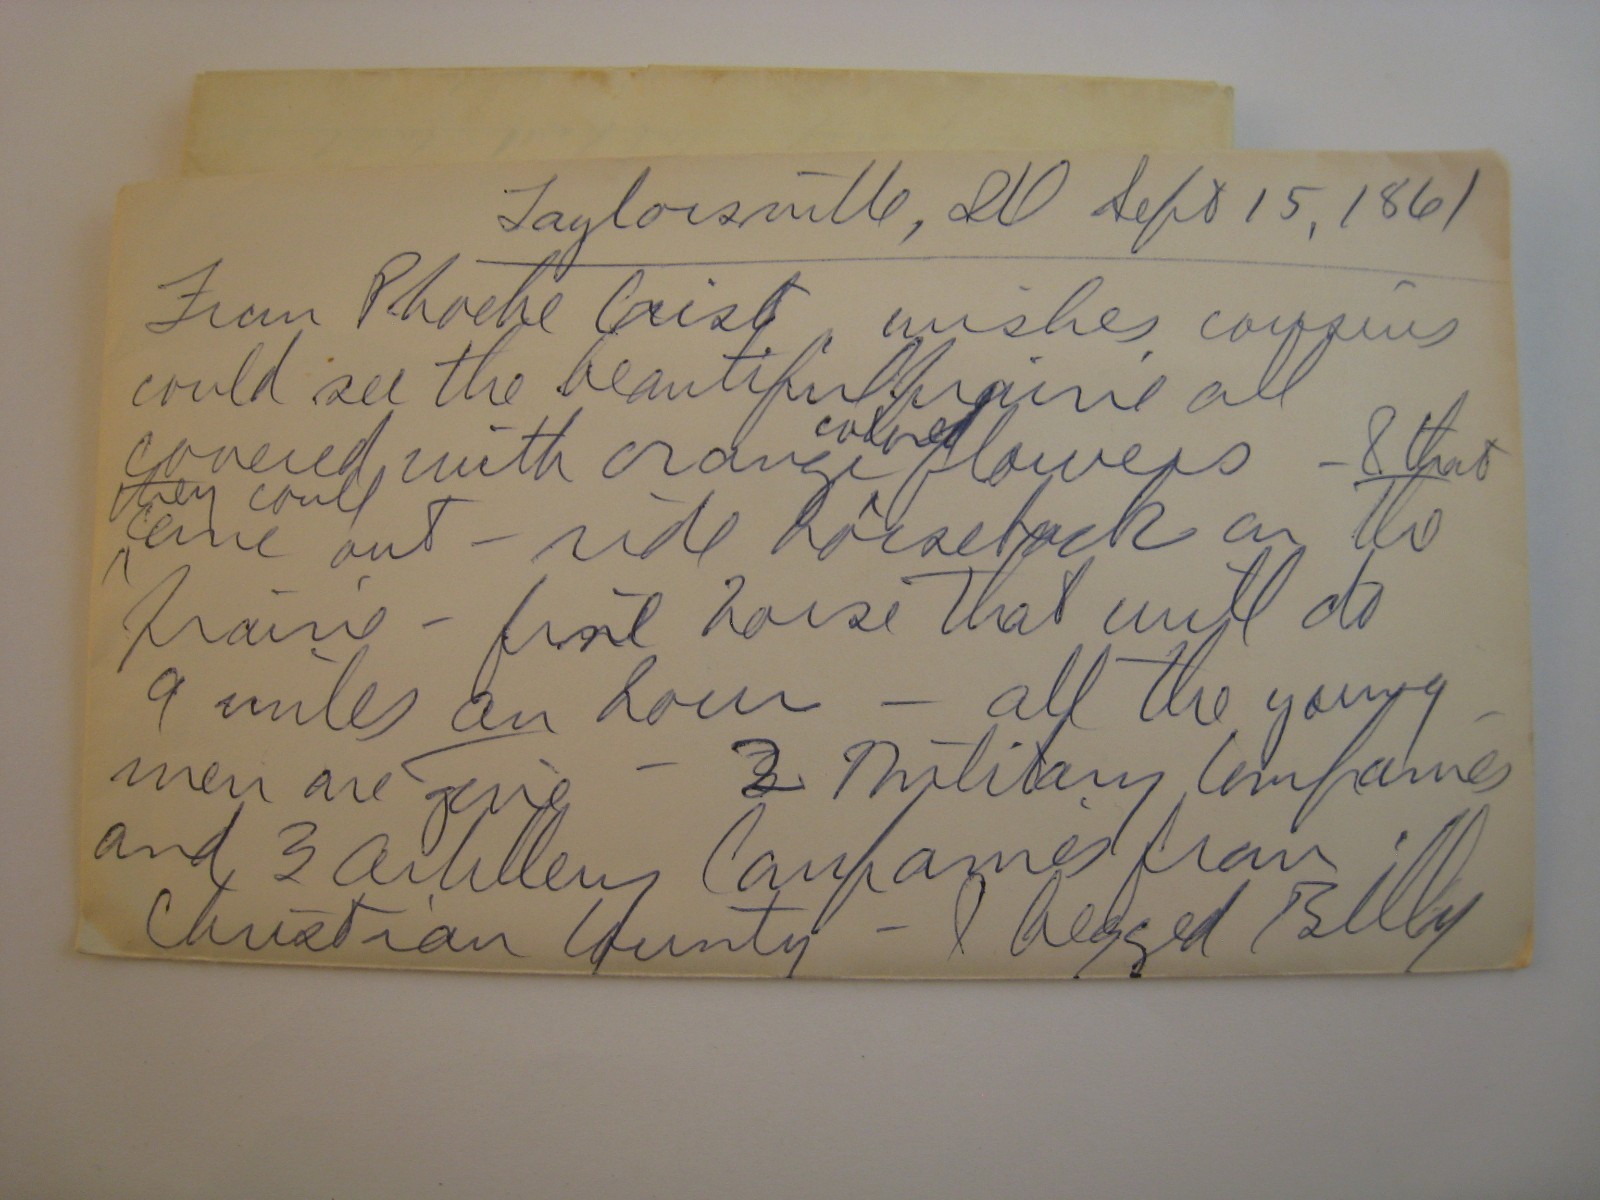 Taylorsville, Ill Sept 15, 1861
From Phoebe Crist, wishes cousins
could see the beautiful prairie all
covered with orange colored flowers - & that
they could
come out - ride horseback on the
prairie - first horse that will do
9 miles an hour - all the young
men are gone - 2 Military Companies
and 3 Artillery Companies from
Christian County - I begged Billy